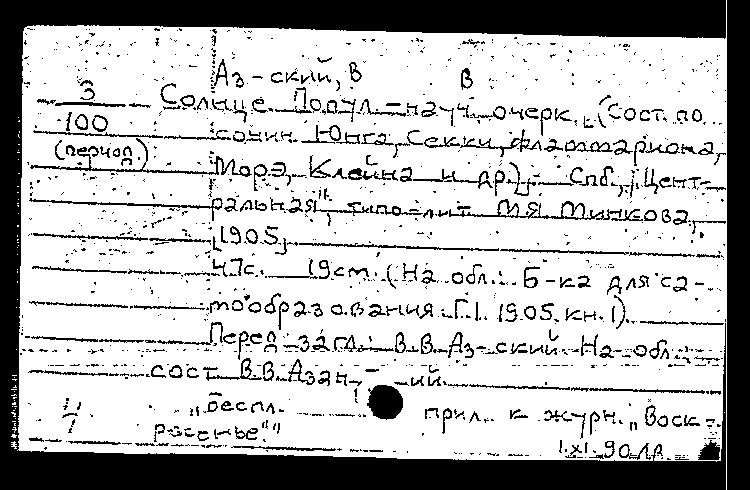 Аз-ский, В В
3 Солнце. Попул.-науч. очерк. (Сост. по
100 сочин. Юнга, Секки, Фламмариона,
(период) Морэ, Клейна и др.). Спб., "Цент-
ральная" типо-лит. М.Я. Минкова,
[1905]
47с. 19см. (На обл.: Б-ка для са-
мообразования. Г.I. 1905. кн. 1).
Перед загл.: В.В. Аз-ский. На обл.:
сост. В.В. Азан, -ий.
"Беспл. прил. к журн. "Воск-
ресенье""
1.XI.90